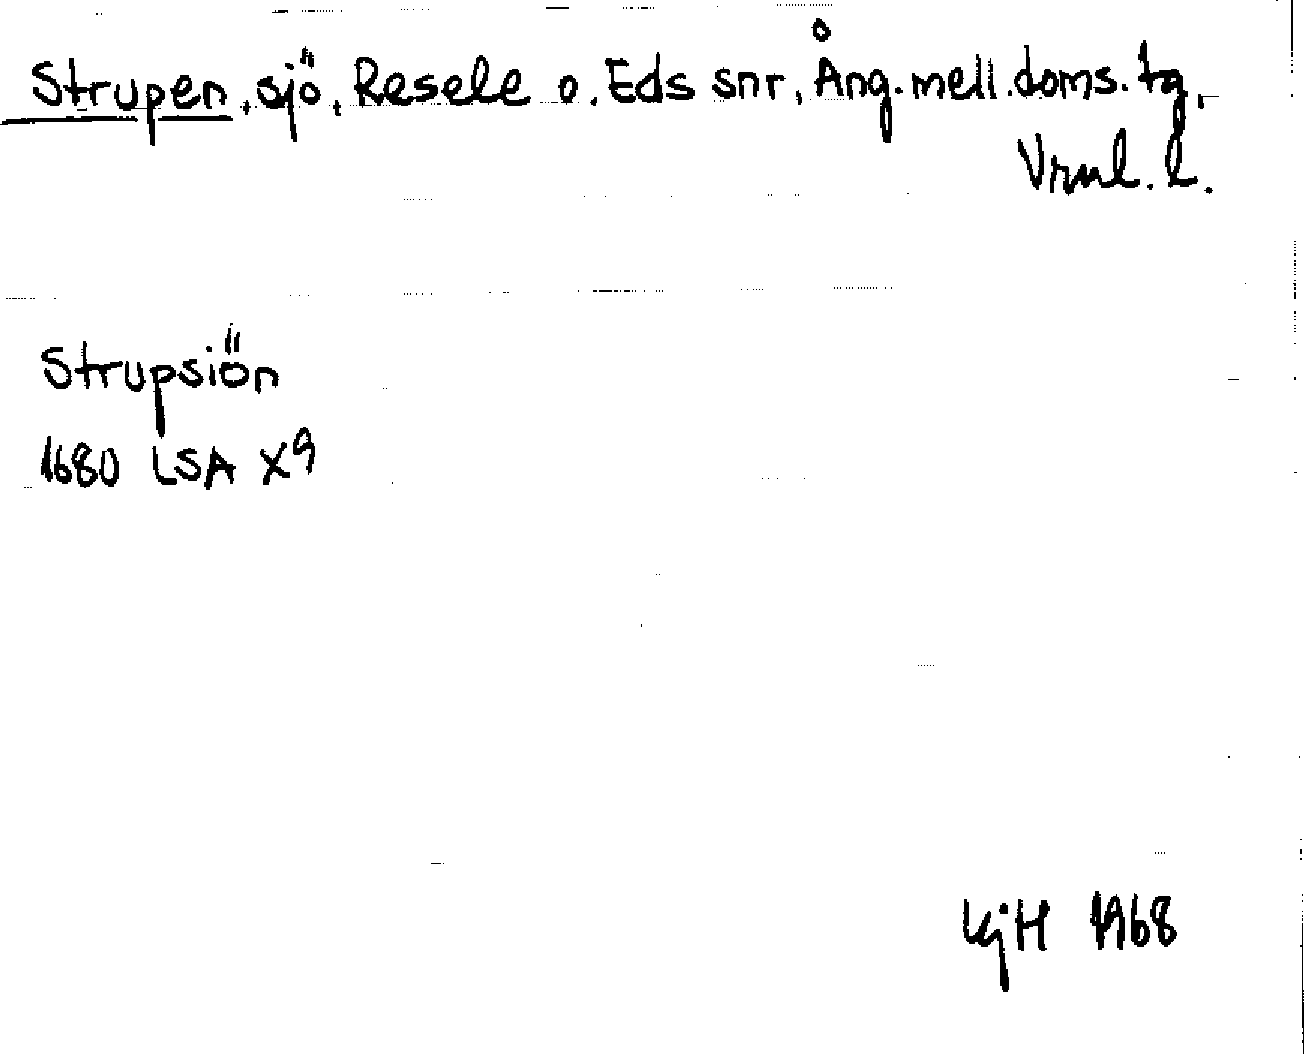 Strupen, sjö, Resele o. Eds snr, Ång. mell. doms. tg,
Vrnl. l.
Strupsiön
1680 LSA X9
KjH 1968